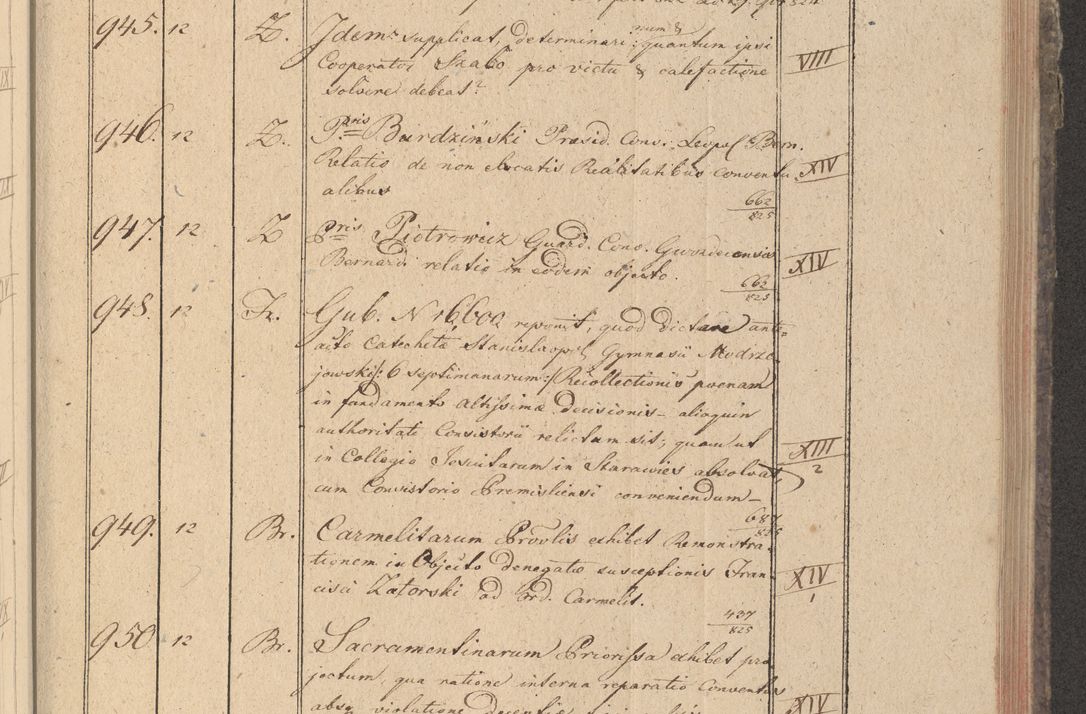 945. 12 Z. Idem supplicat, determinari: num & quantum ipsi
Cooperator Szabo pro victu & calefactione VIII
solvere debeat?
946. 12 Z. Pris Burdziński Præsid. Conv. Leopol Bern.
Relatio de non elocatis Realitatibus conventu XIV
alibus 662/825
947. 12 Z Pris Piotrowicz Guard. Conv. Gwozdecensis
Bernard. relatio in eodem objecto. XIV
662/825
948. 12 Gub. N 16,602 reponit, quod dictare ante=
acto Catechetæ Stanislaopol Gymnasii Modrze
jowski /: 6 septimanarum :/ Recollectionis poenam
in fundamento Altissimæ decisionis – alioquin
authoritati Consistorii relictum sit; quam ut XIII/2
in Collegio Jesuitarum in Starawies absolvat,
cum Consistorio Premisliensi conveniendum –
687/825
949. 12 Br. Carmelitarum Provlis exhibet Remonstra-
tionem in Objecto denegatæ susceptionis Fran- XIV/1
cisci Zatorski ad Ord. Carmelit.
437/825
950 12 Br. Sacramentinarum Priorissa exhibet pro
jectum, qua ratione interna reparatio Conventus
absq violatione XIV